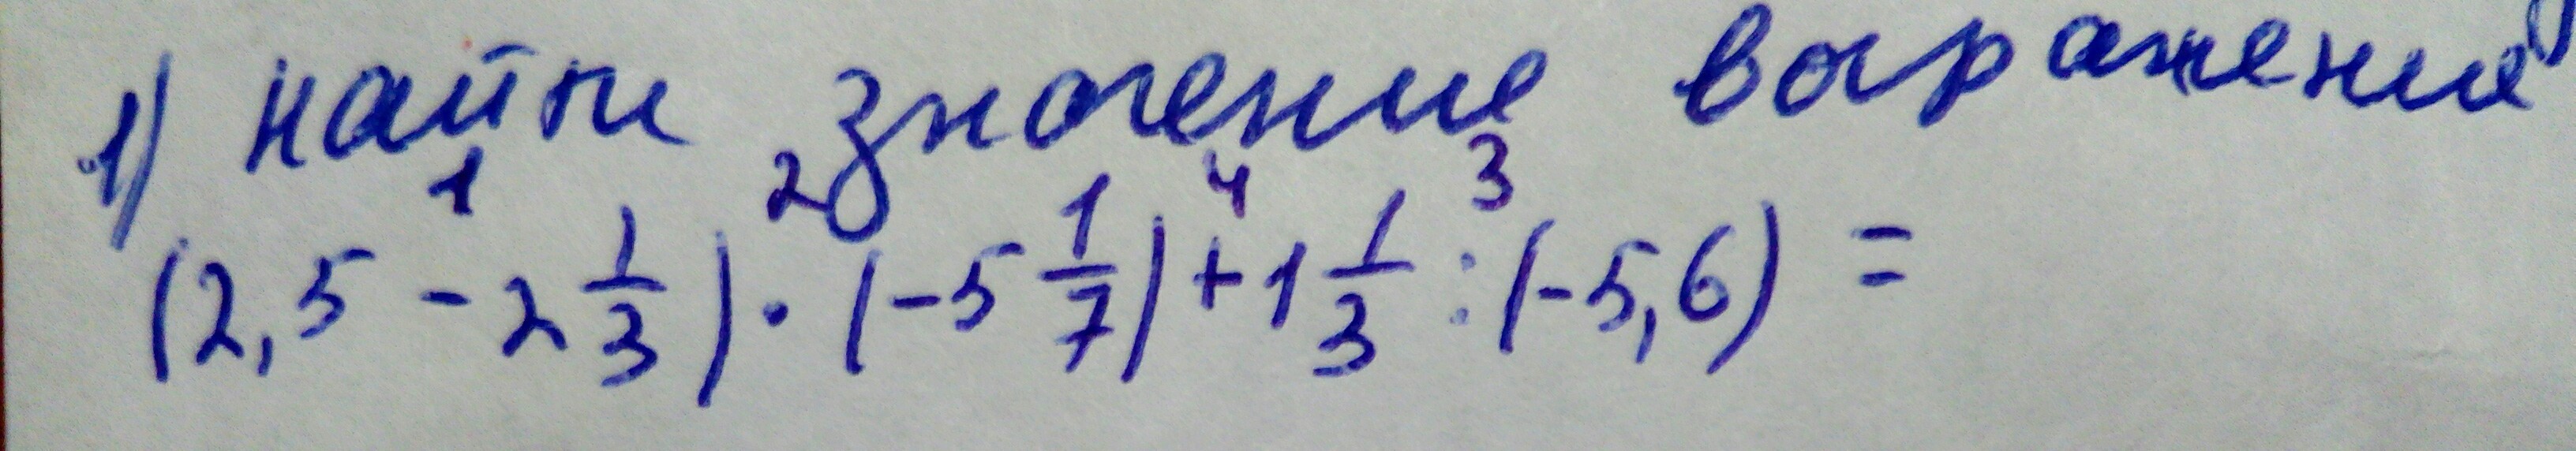 1) найти значение выражений
1 2 4 3
(2,5 - 2 1/3) · (-5 1/7) + 1 1/3 : (-5,6) =